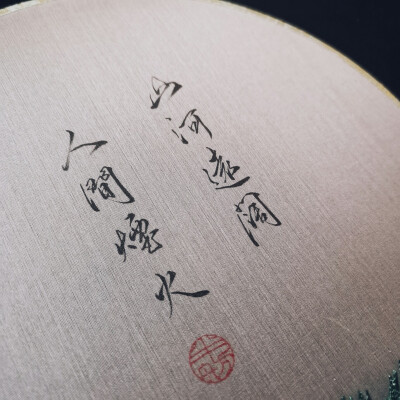 山河遠闊
人間煙火